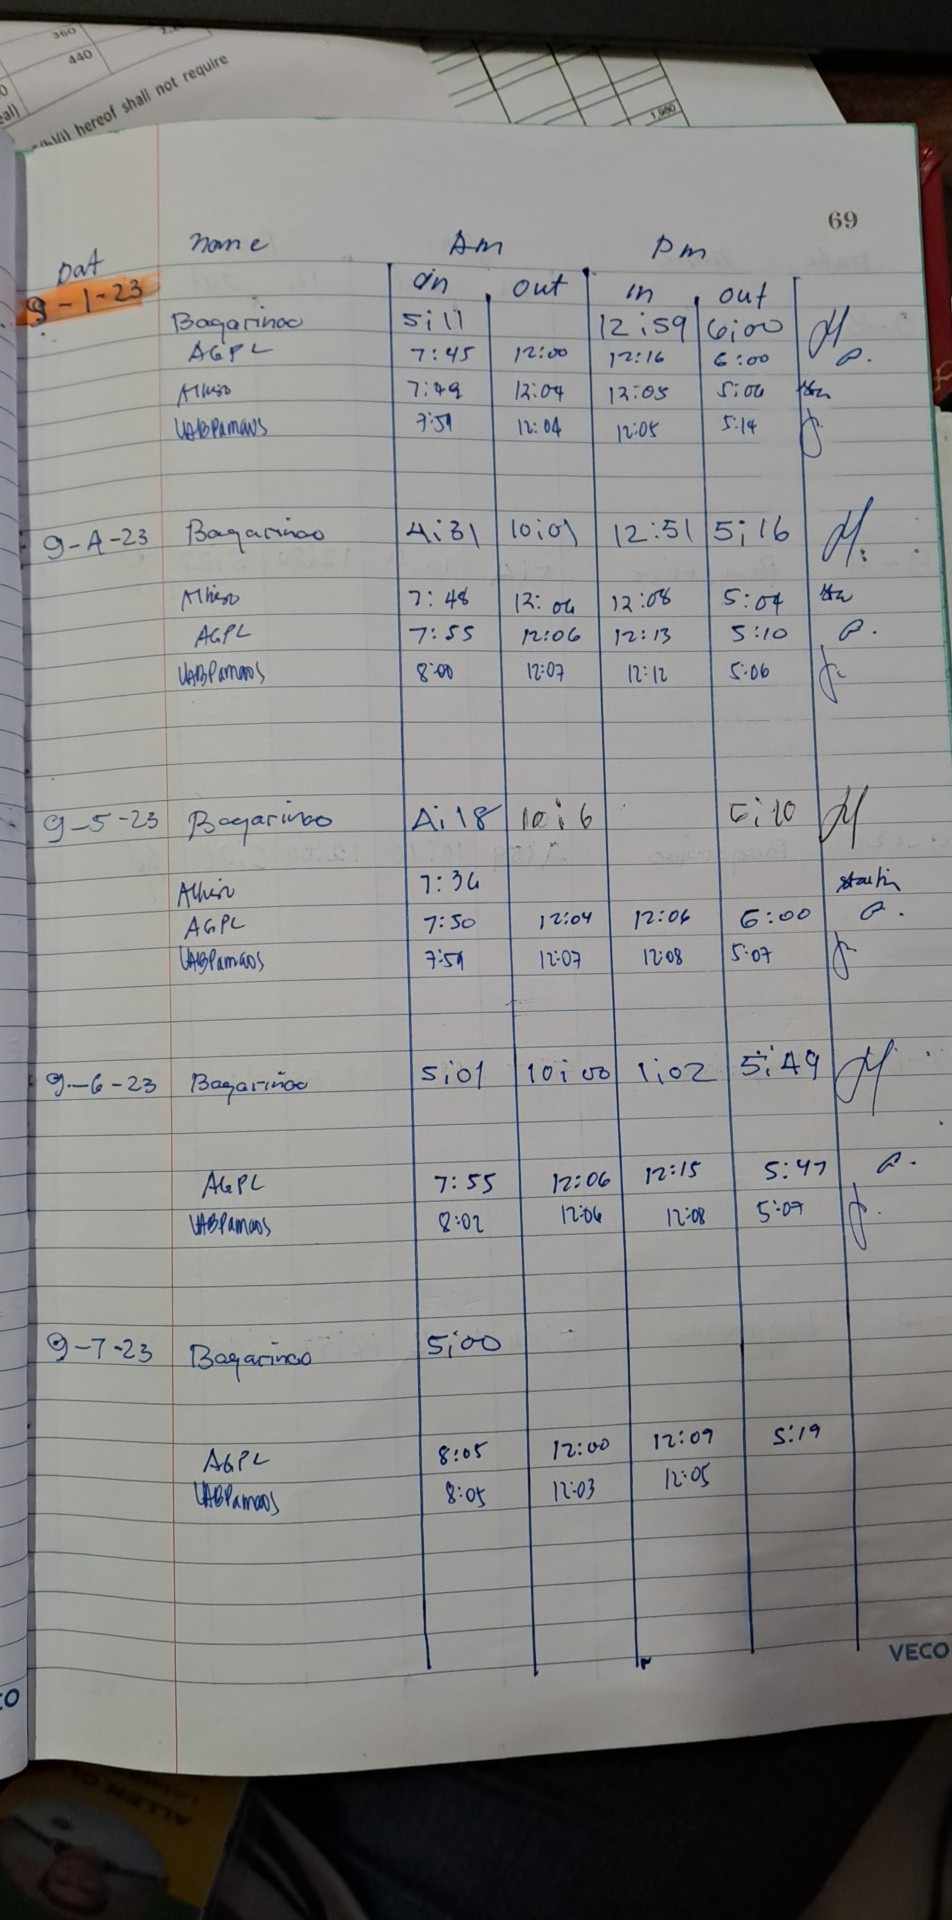 360
440
eal)
hereof shall not require
1,980
69
Dat name Am Pm
in out in out
9-1-23
Bagarinao 5:11 12:59 6:00
AGPL 7:45 12:00 12:16 6:00
7:49 12:04 12:05 5:06
UABPamaos 7:59 12:04 12:05 5:14
9-4-23 Bagarinao 4:31 10:01 12:51 5:16
7:48 12:06 12:08 5:04
AGPL 7:55 12:06 12:13 5:10
UABPamaos 8:00 12:07 12:12 5:06
9-5-23 Bagarinao 4:18 10:6 5:10
7:36
AGPL 7:50 12:04 12:06 6:00
UABPamaos 7:59 12:07 12:08 5:07
9-6-23 Bagariñao 5:01 10:00 1:02 5:49
AGPL 7:55 12:06 12:15 5:47
UABPamaos 8:02 12:06 12:08 5:07
9-7-23 Bagarinao 5:00
AGPL 8:05 12:00 12:09 5:19
UABPamaos 8:05 12:03 12:05
VECO
CO